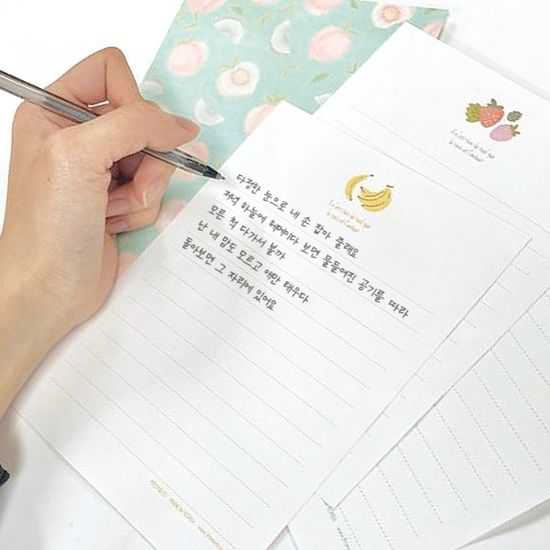 다정한 눈으로 내 손 잡아 줄래요
저녁 하늘에 헤매이다 보면 물들여진 공기를 따라
모른 척 다가서 볼까
난 내 맘도 모르고 애만 태우다
돌아보면 그 자리에 있어요